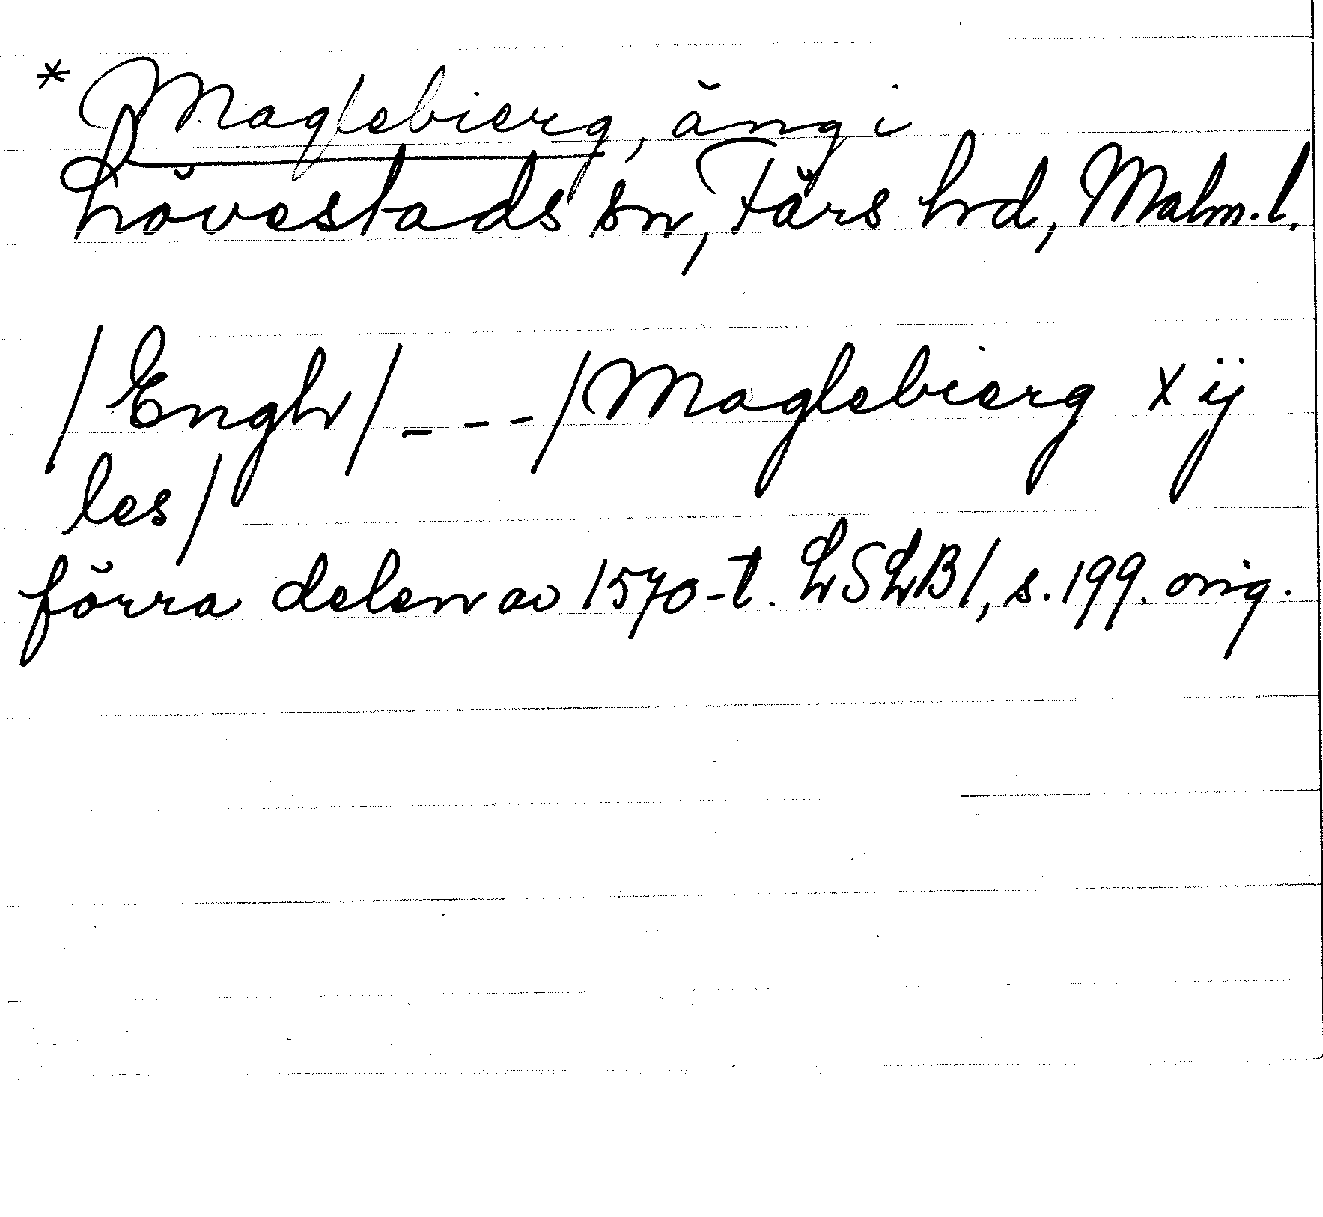 * Maglebierg, äng i
Lövestads sn, Färs hd, Malm. l.
/Engh/ _ _ _ /Maglebierg xij
les/
förra delen av 1570-t. LSLB 1, s. 199. orig.